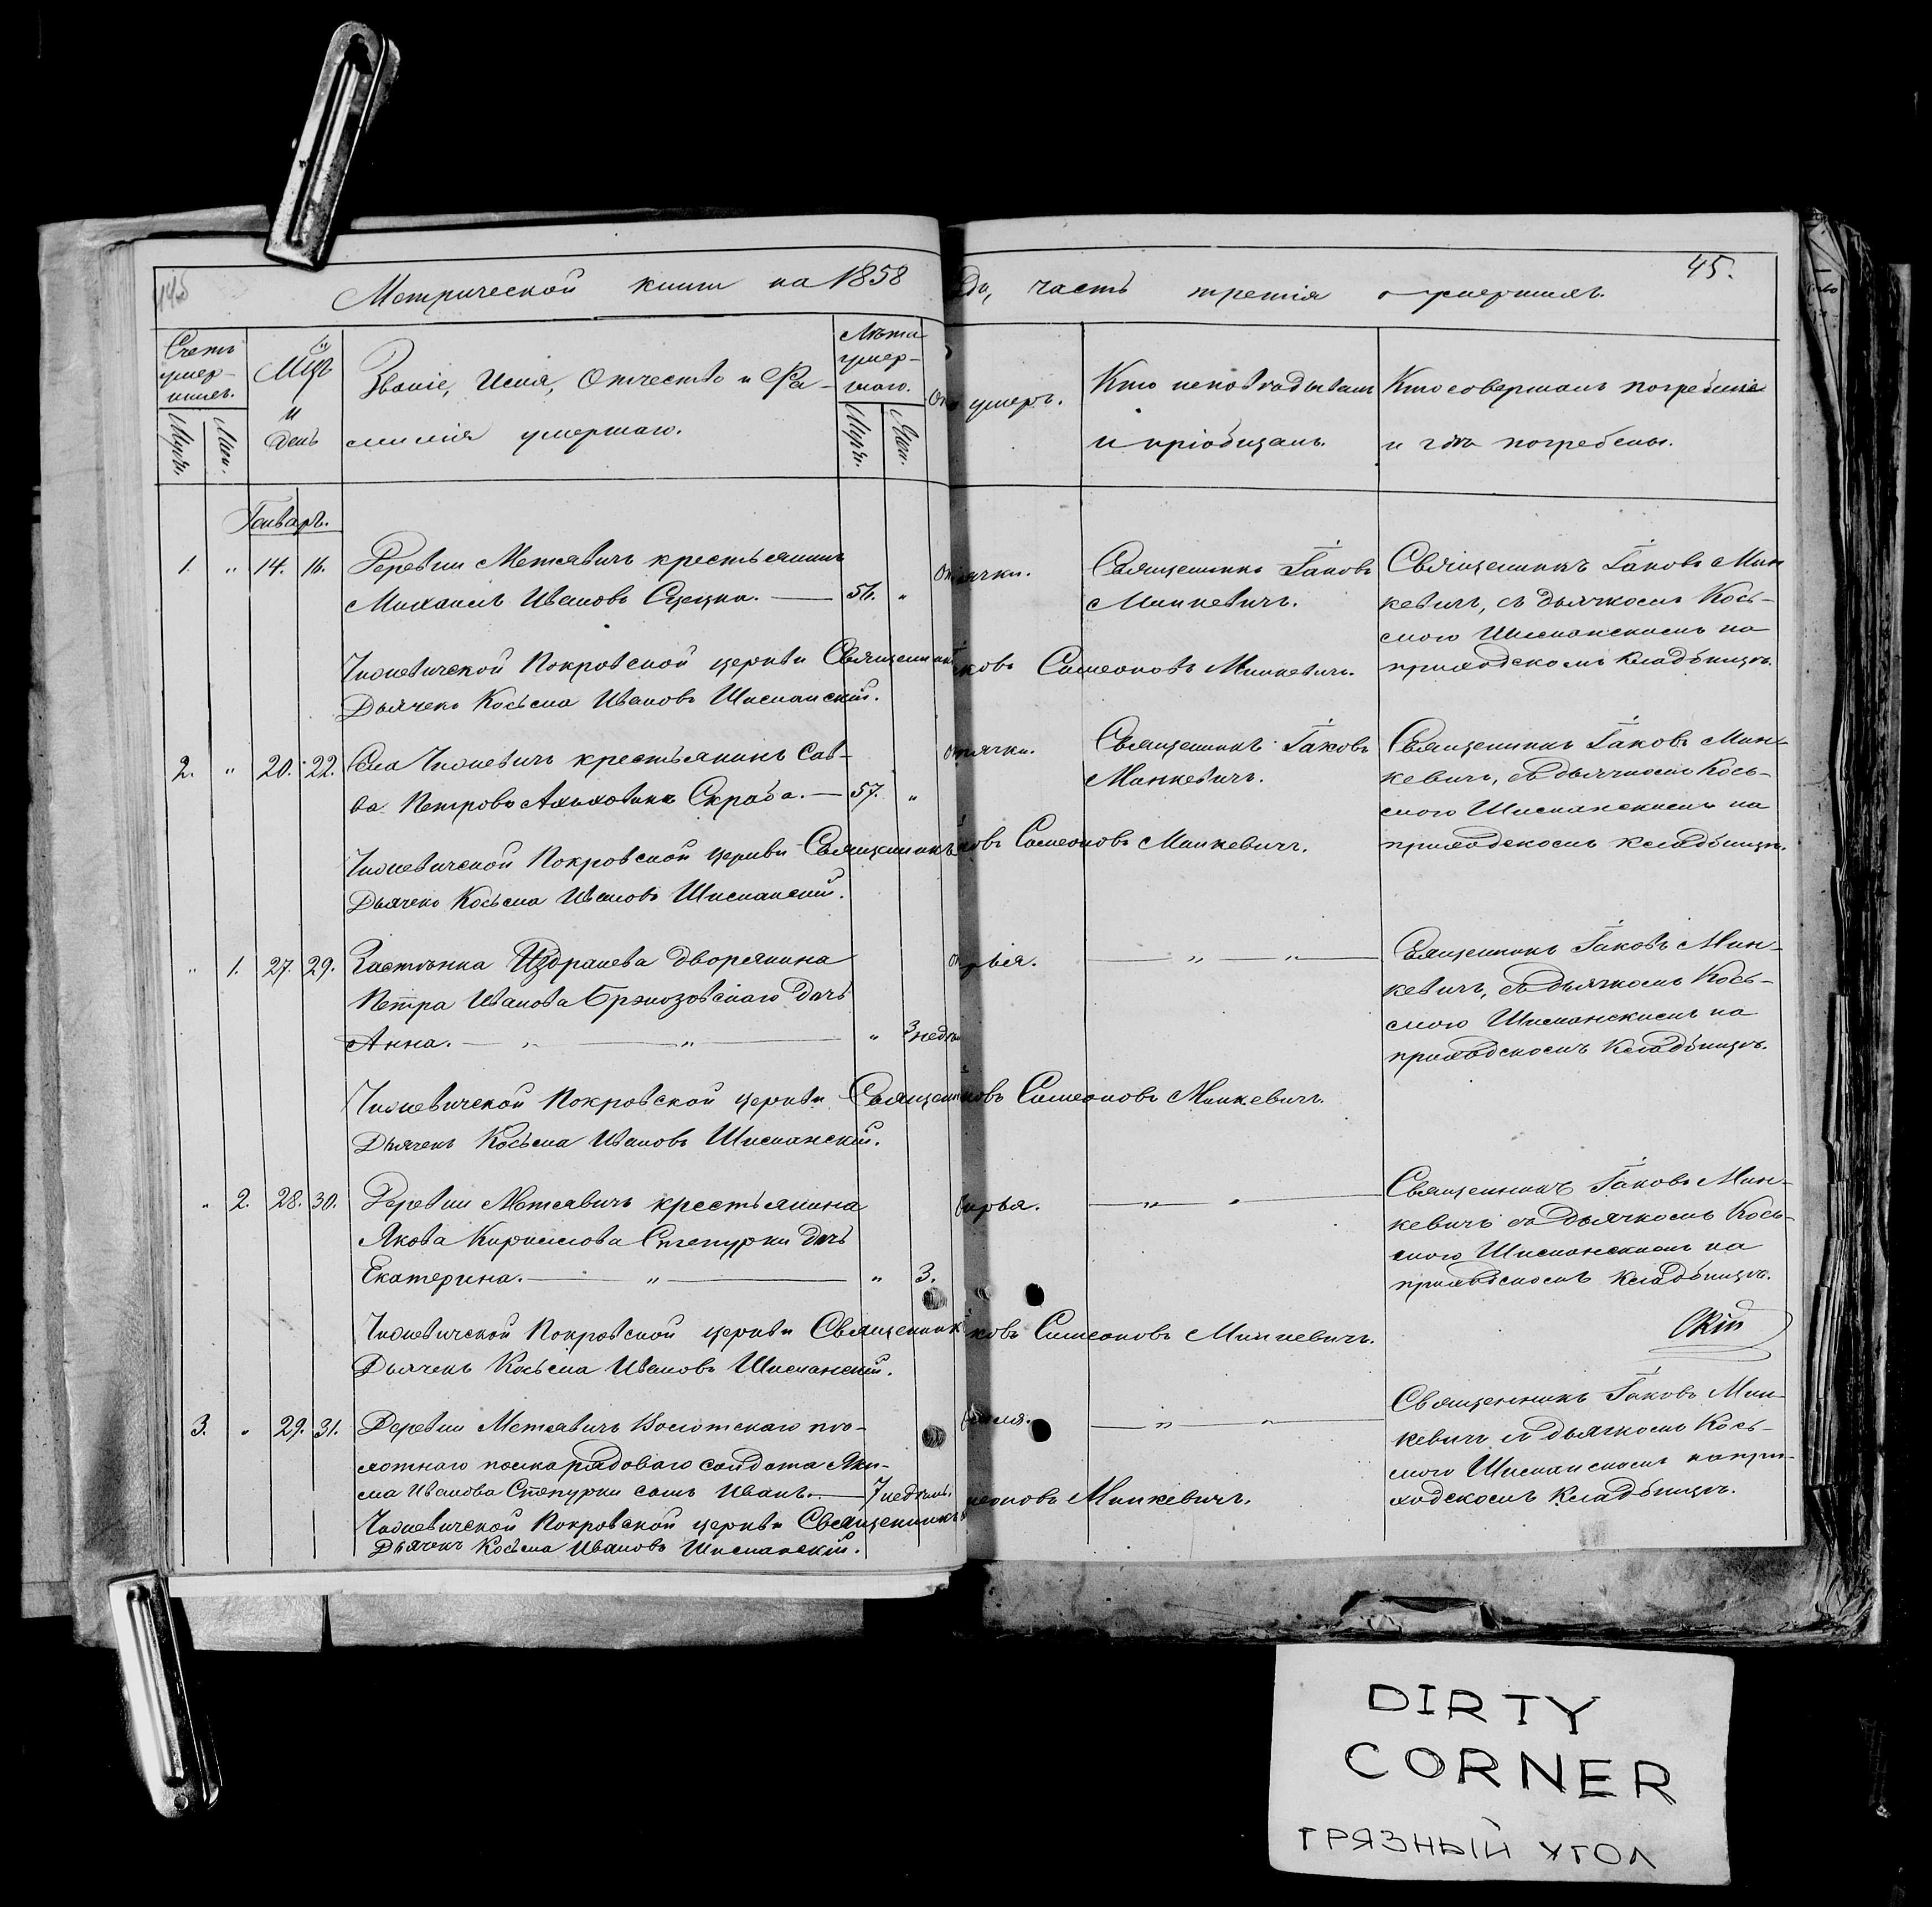 145
45.
Метрической книги на 1858 года, часть третія о умершихъ.
Счетъ умер-шихъ.
Муж. Жен.
Мцъ и день
Званіе, Имя, Отчество и Фа-
милія умершаго.
Лѣта умер-шаго.
Муж. Жен.
Отъ чего умеръ.
Кто исповѣдывалъ
и пріобщалъ.
Кто совершалъ погребеніе
и гдѣ погребены.
Генварь.
1. " 14. 16. Деревни Метявичъ крестьянинъ
Михаилъ Ивановъ — 56. "
Отъ горячки.
Священникъ Іаковъ
Минкевичъ.
Священникъ Іаковъ Мин
кевичъ, съ дьячкомъ Кось-
мою Шиманскимъ на
приходскомъ кладбищѣ.
Покровской церкви Священникъ Іаковъ Симеоновъ Минкевичъ.
Дьячекъ Косьма Ивановъ Шиманскій.
2. " 20. 22. Села крестьянинъ Сав-
ва Петровъ Скраба. — 57. "
Отъ горячки.
Священникъ Іаковъ
Минкевичъ.
Священникъ Іаковъ Мин-
кевичъ, съ дьячкомъ Кось-
мою Шиманскимъ на
приходскомъ кладбищѣ.
Покровской церкви Священникъ Іаковъ Симеоновъ Минкевичъ.
Дьячекъ Косьма Ивановъ Шиманскій.
" 1. 27. 29. Застѣнка дворянина
Петра Иванова дочь
Анна. — " — " — " 3 недѣли
Священникъ Іаковъ Мин-
кевичъ, съ дьячкомъ Кось-
мою Шиманскимъ на
приходскомъ кладбищѣ.
Покровской церкви Священникъ Іаковъ Симеоновъ Минкевичъ.
Дьячекъ Косьма Ивановъ Шиманскій.
" 2. 28. 30. Деревни Метявичъ крестьянина
Якова Кириллова Степурки дочь
Екатерина. — " — " 3.
Священникъ Іаковъ Мин-
кевичъ съ дьячкомъ Кось-
мою Шиманскимъ на
приходскомъ кладбищѣ.
Покровской церкви Священникъ Іаковъ Симеоновъ Минкевичъ.
Дьячекъ Косьма Ивановъ Шиманскій.
3. " 29. 31. Деревни Метявичъ
полка рядоваго солдата Яки-
ма Иванова Степурки сынъ Иванъ. — 7 недѣль.
Священникъ Іаковъ Мин-
кевичъ съ дьячкомъ Кось-
мою Шиманскимъ на при-
ходскомъ кладбищѣ.
Покровской церкви Священникъ Симеоновъ Минкевичъ.
Дьячекъ Косьма Ивановъ Шиманскій.
DIRTY
CORNER
ГРЯЗНЫЙ УГОЛ